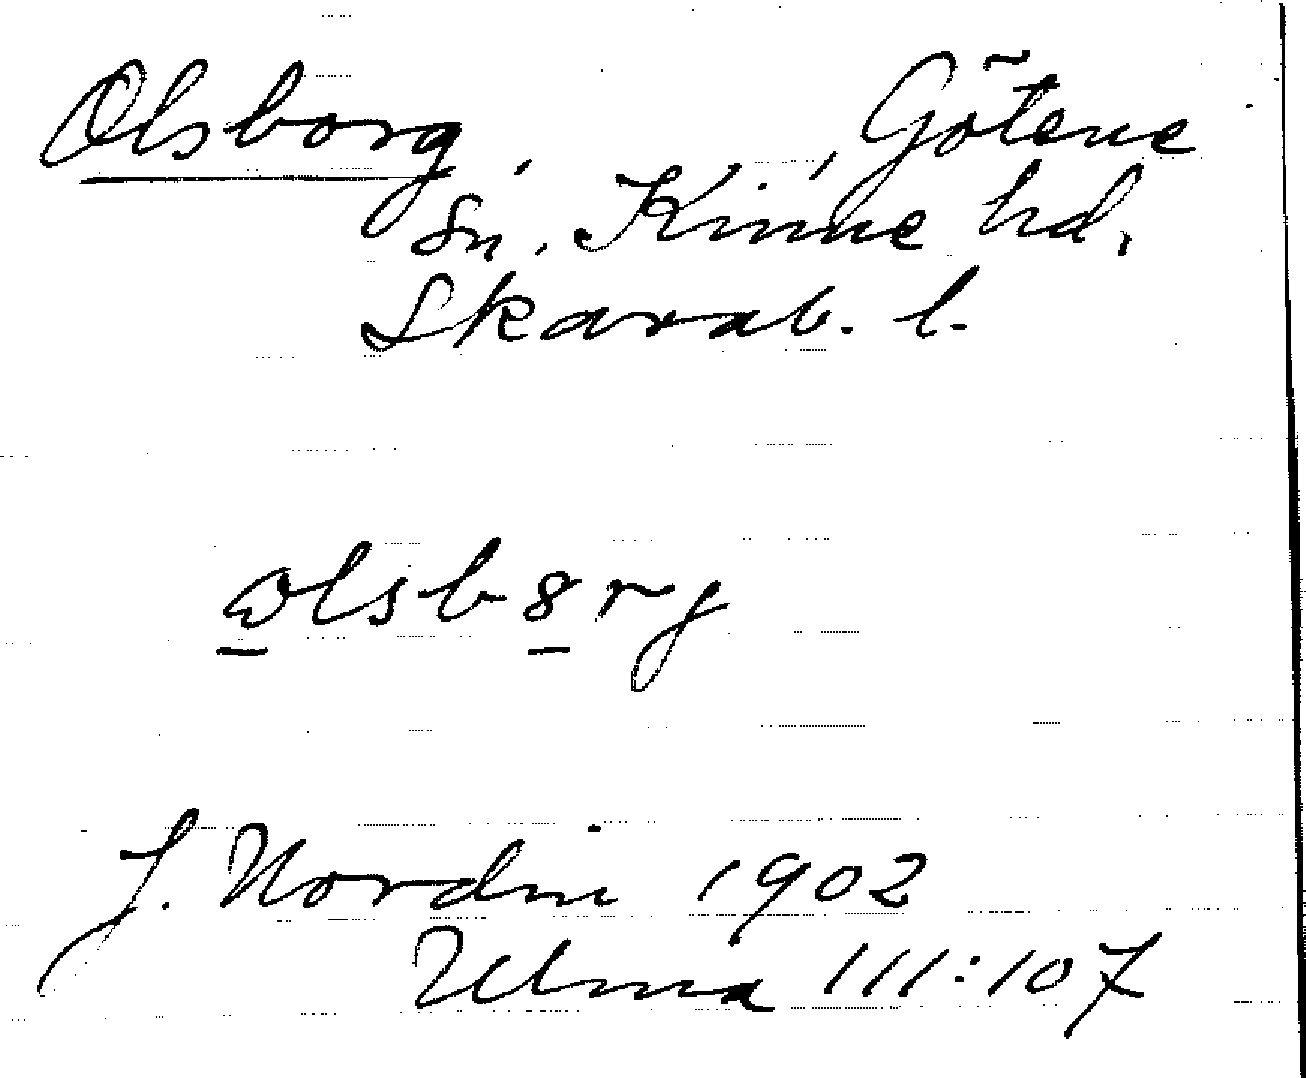 Olsborg, Götene
sn, Kinne hd,
Skarab. l.
olsb8rg
J. Nordin 1902
Ulma 111:107